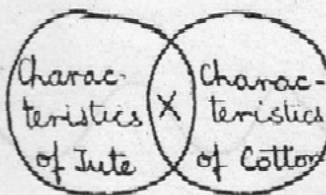 Charac-
teristics
of Jute
X
Charac-
teristics
of Cotton